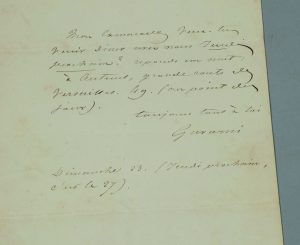 Mon camarade, veux-tu
venir dîner avec nous Jeudi
prochain? réponds un mot
à Auteuil, grande route de
Versailles 69. (au point du
jour).
toujours tout à toi
Gavarni
Dimanche 23. (Jeudi prochain,
c'est le 27).